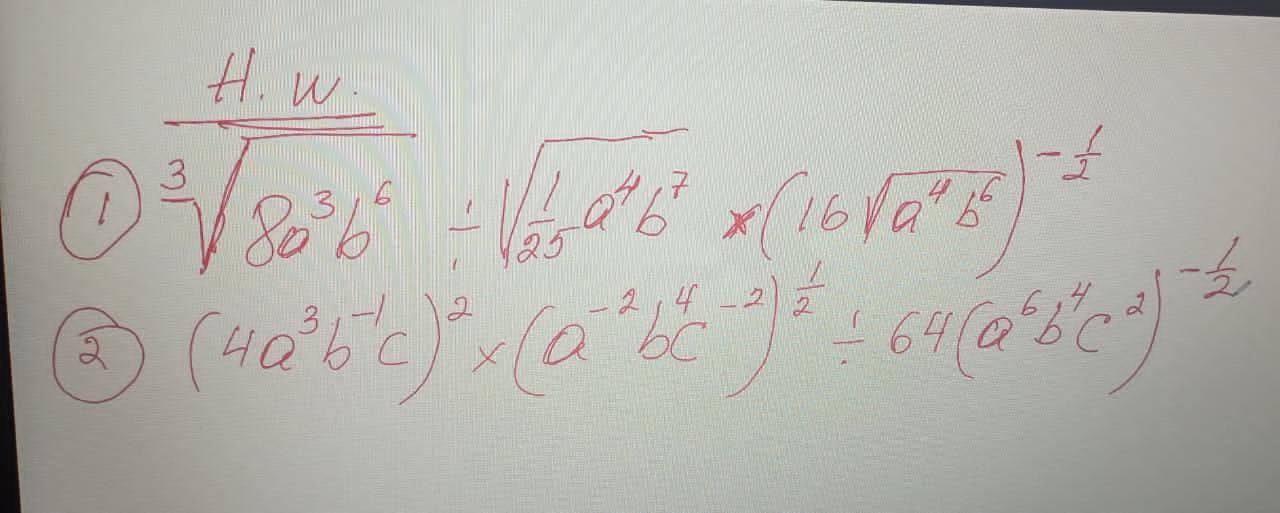 H. W.
① ∛(8a³b⁶) ÷ √(1/25 a⁴b⁷) × (16√(a⁴b⁶))^(-1/2)
② (4a³b⁻¹c)² × (a⁻²b⁴c⁻²)^(1/2) ÷ 64(a⁶b⁴c²)^(-1/2)